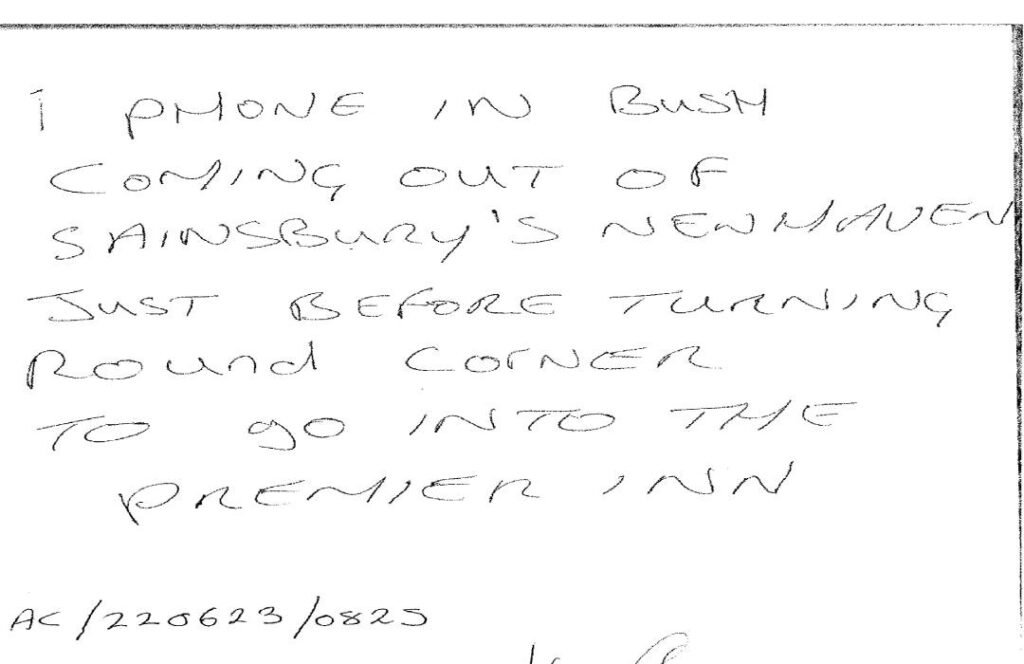 i PHONE IN BUSH
COMING OUT OF
SAINSBURY'S NEWHAVEN
JUST BEFORE TURNING
ROUnd CORNER
TO go INTO THE
PREMIER INN
AC/220623/0825